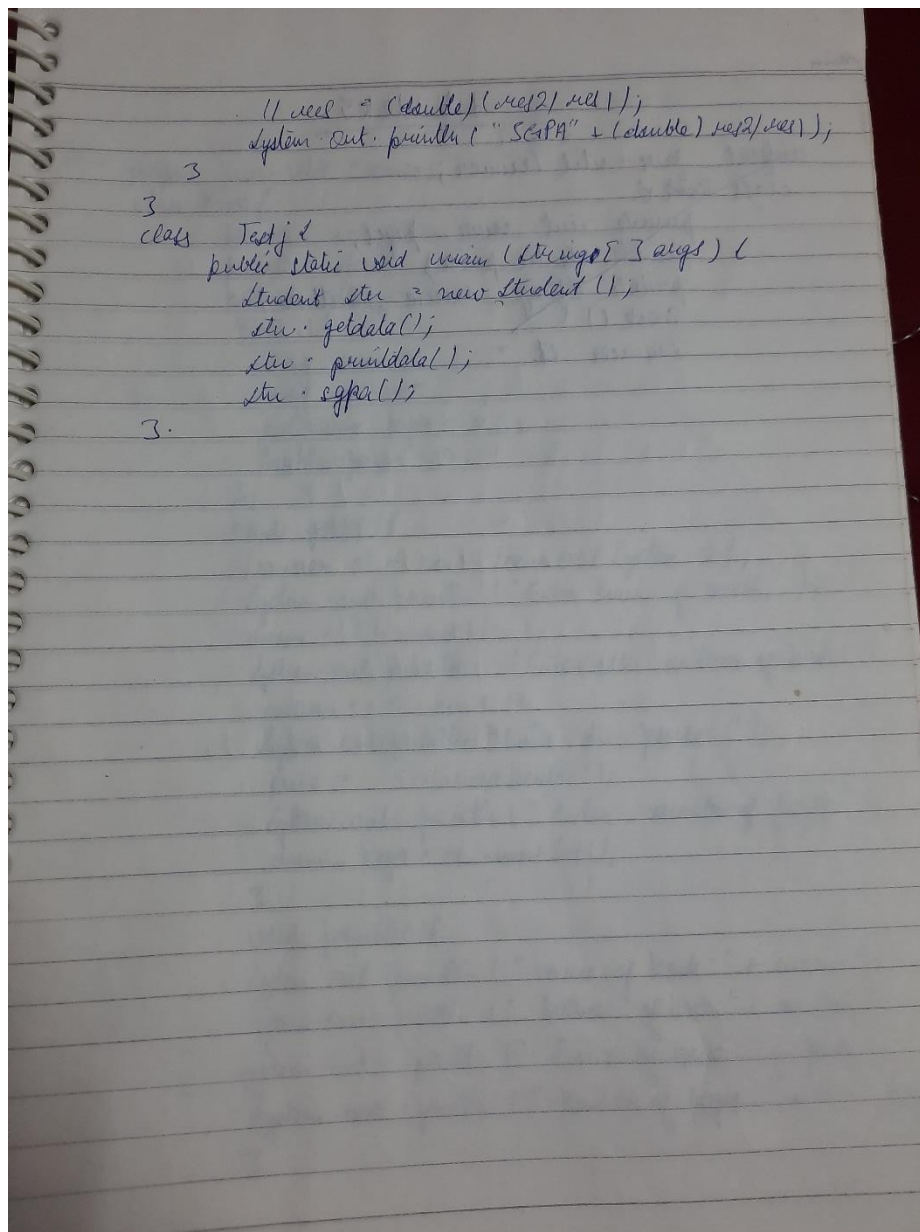 // res = (double)(res2/res1);
System.out.println("SGPA" + (double)res2/res1);
}
}
class Testj{
public static void main(String[] args) {
Student stu = new Student();
stu.getdata();
stu.printdata();
stu.sgpa();
}.